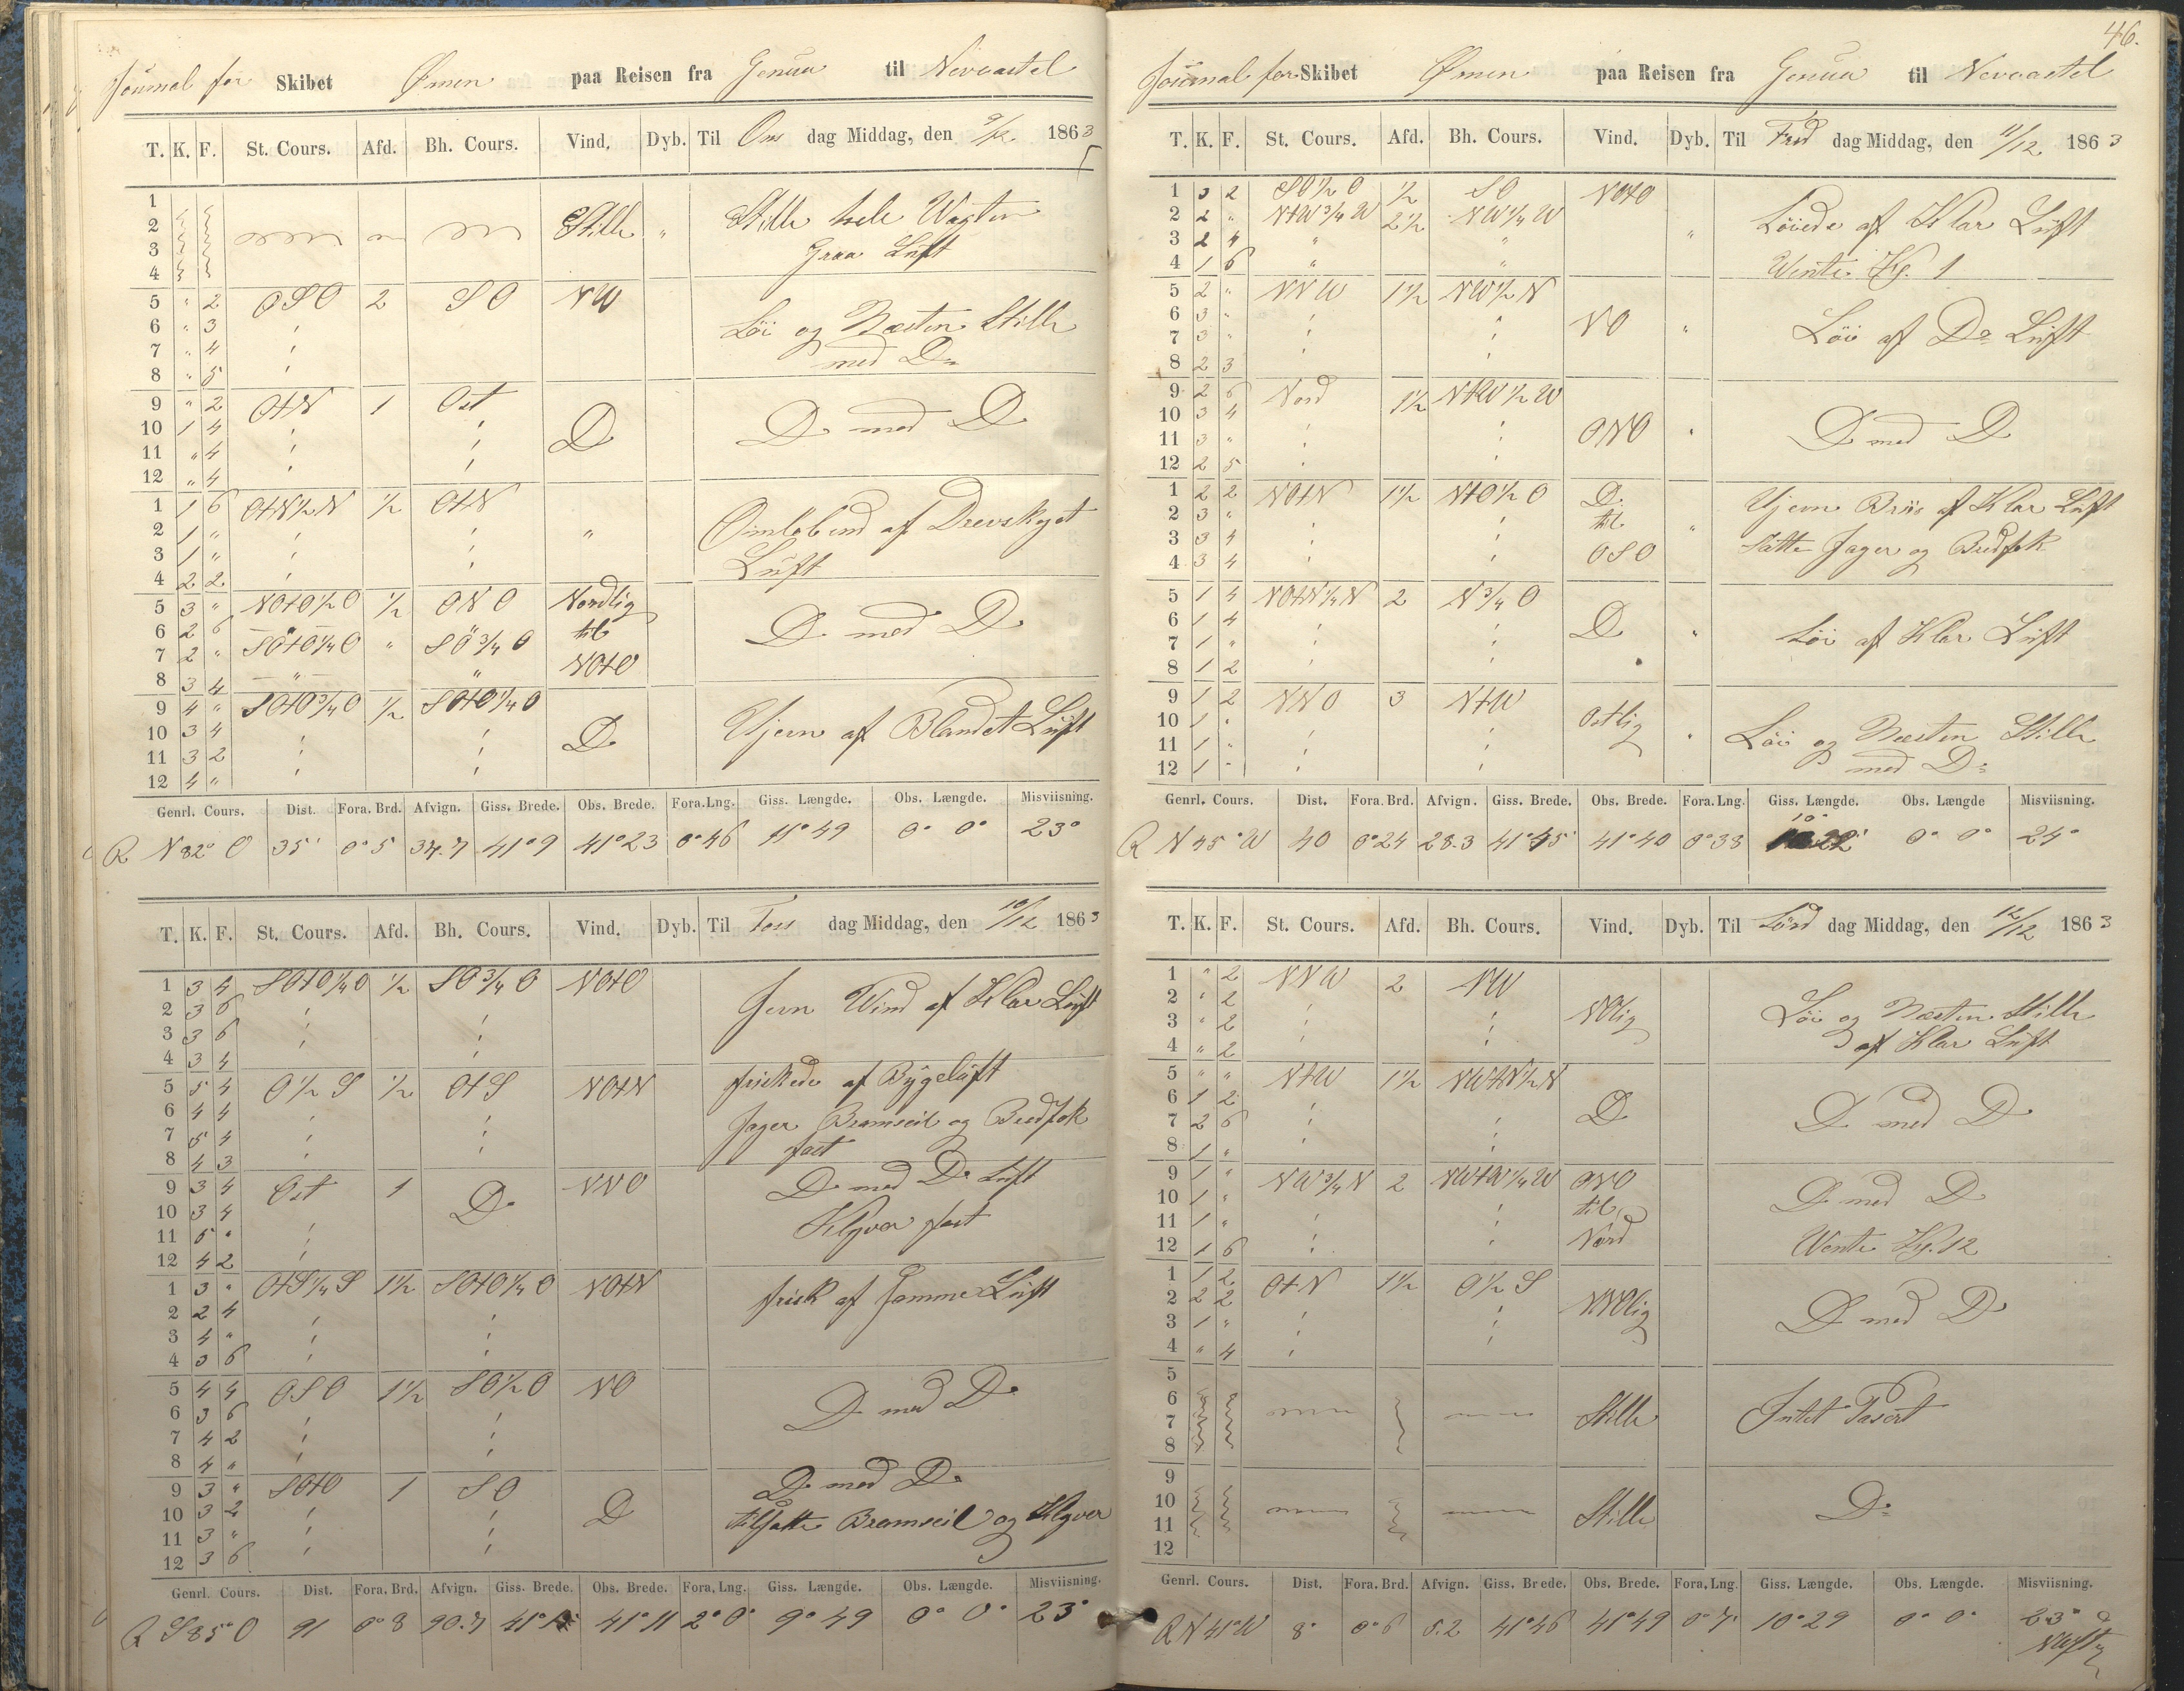 46.
Journal for Skibet Ømen paa Reisen fra Genua til Nevcastel
T. K. F. St. Cours. Afd. Bh. Cours. Vind. Dyb. Til Ons dag Middag, den 9/12 1863
1
2 Stille " Stille hele Vagten
3 Graa Luft
4
5 " 2 OSO 2 SO NW
6 " 3 Löi og Næsten Stille
7 " 4 med Do
8 " 5
9 " 2 OtN 1 Ost
10 1 4 D D med D
11 " 4
12 " 4
1 1 6 OtN½N ½ OtN
2 1 " " Omløbend af Drevskyet
3 1 " Luft
4 2 2
5 3 " NOtO½O ½ ONO Nordlig
6 2 6 til D med D
7 2 " SOtO¼O " SO¾O NOtO
8 3 4 " "
9 4 " SOtO¾O ½ SOtO¼O
10 3 4 D Ujevn af Blandet Luft
11 3 2
12 4 "
Genrl. Cours. Dist. Fora. Brd. Afvign. Giss. Brede. Obs. Brede. Fora. Lng. Giss. Længde. Obs. Længde. Misviisning.
R N 82° O 35' 0° 5 34.7 41° 9 41° 23 0° 46 11° 49 0° 0° 23°
T. K. F. St. Cours. Afd. Bh. Cours. Vind. Dyb. Til Tors dag Middag, den 10/12 1863
1 3 4 SOtO¼O ½ SO¾O NOtO
2 3 6 Jevn Wind af Klar Luft
3 3 6
4 3 4
5 5 4 O½S ½ OtS NOtN friskede af Bygeluft
6 4 4 Jager Bramseil og Bredfok
7 5 4 fast
8 4 3
9 3 4 Ost 1 D NNO D med Do Luft
10 3 4 Klyver fast
11 5 "
12 4 2
1 3 " OtS¼S 1½ SOtO¼O NOtN frisk af Samme Luft
2 2 4
3 4 "
4 3 6
5 4 4 OSO 1½ SO½O NO D med Do
6 3 6
7 4 2
8 4 "
9 3 " SOtO 1 SO D D med Do
10 3 2 tilsatte Bramseil og Klyver
11 3 "
12 3 6
Genrl. Cours. Dist. Fora. Brd. Afvign. Giss. Brede. Obs. Brede. Fora. Lng. Giss. Længde. Obs. Længde. Misviisning.
R S 85° O 91 0° 8 90.7 41° 41° 11 2° 0° 9° 49 0° 0° 23°
Journal for Skibet Ømen paa Reisen fra Genua til Nevcastel
T. K. F. St. Cours. Afd. Bh. Cours. Vind. Dyb. Til Fred dag Middag, den 11/12 1863
1 3 2 SO½O ½ SO NOtO
2 2 " NtW¾W 2½ NW¼W " Löiede af Klar Luft
3 2 4 " "
4 1 6 " " Vente Kl. 1
5 2 " NNW 1½ NW½N
6 3 " NO " Löi af Do Luft
7 3 "
8 2 3
9 2 6 Nord 1½ NtW½W
10 3 4 ONO " D med D
11 3 "
12 2 5
1 2 2 NOtN 1½ NtO½O D. Ujevn Briis af Klar Luft
2 3 " til "
3 3 4 OSO Satte Jager og Bredfok
4 3 4
5 1 4 NOtN¼N 2 N¾O
6 1 4 D " Löi af Klar Luft
7 1 "
8 1 2
9 1 2 NNO 3 NtW
10 1 " Ostlig " Löi og Næsten Stille
11 1 " med Do
12 1 "
Genrl. Cours. Dist. Fora. Brd. Afvign. Giss. Brede. Obs. Brede. Fora. Lng. Giss. Længde. Obs. Længde Misviisning.
R N 45° W 40 0° 24 28.3 41° 45' 41° 40 0° 38 10° 22' 0° 0° 24°
T. K. F. St. Cours. Afd. Bh. Cours. Vind. Dyb. Til Lörd dag Middag, den 12/12 1863
1 " 2 NNW 2 NW
2 " 2 NOlig Löi og Næsten Stille
3 " 2 af Klar Luft
4 " 2
5 " " NtW 1½ NWtN½N
6 1 2 D D med D
7 2 6
8 1 "
9 1 " NW¾N 2 NWtW¼W ONO D med D
10 1 " til
11 1 " Nord Vente Kl. 12
12 1 6
1 1 2 OtN 1½ O½S
2 2 2 NNOlig D med D
3 1 "
4 " 4
5
6 Stille Intet Passert
7
8
9
10 Stille Do
11
12
Genrl. Cours. Dist. Fora. Brd. Afvign. Giss. Brede. Obs. Brede. Fora. Lng. Giss. Længde. Obs. Længde. Misviisning.
R N 41° W 8" 0° 6 5.2 41° 46 41° 49 0° 7' 10° 29 0° 0° 23°